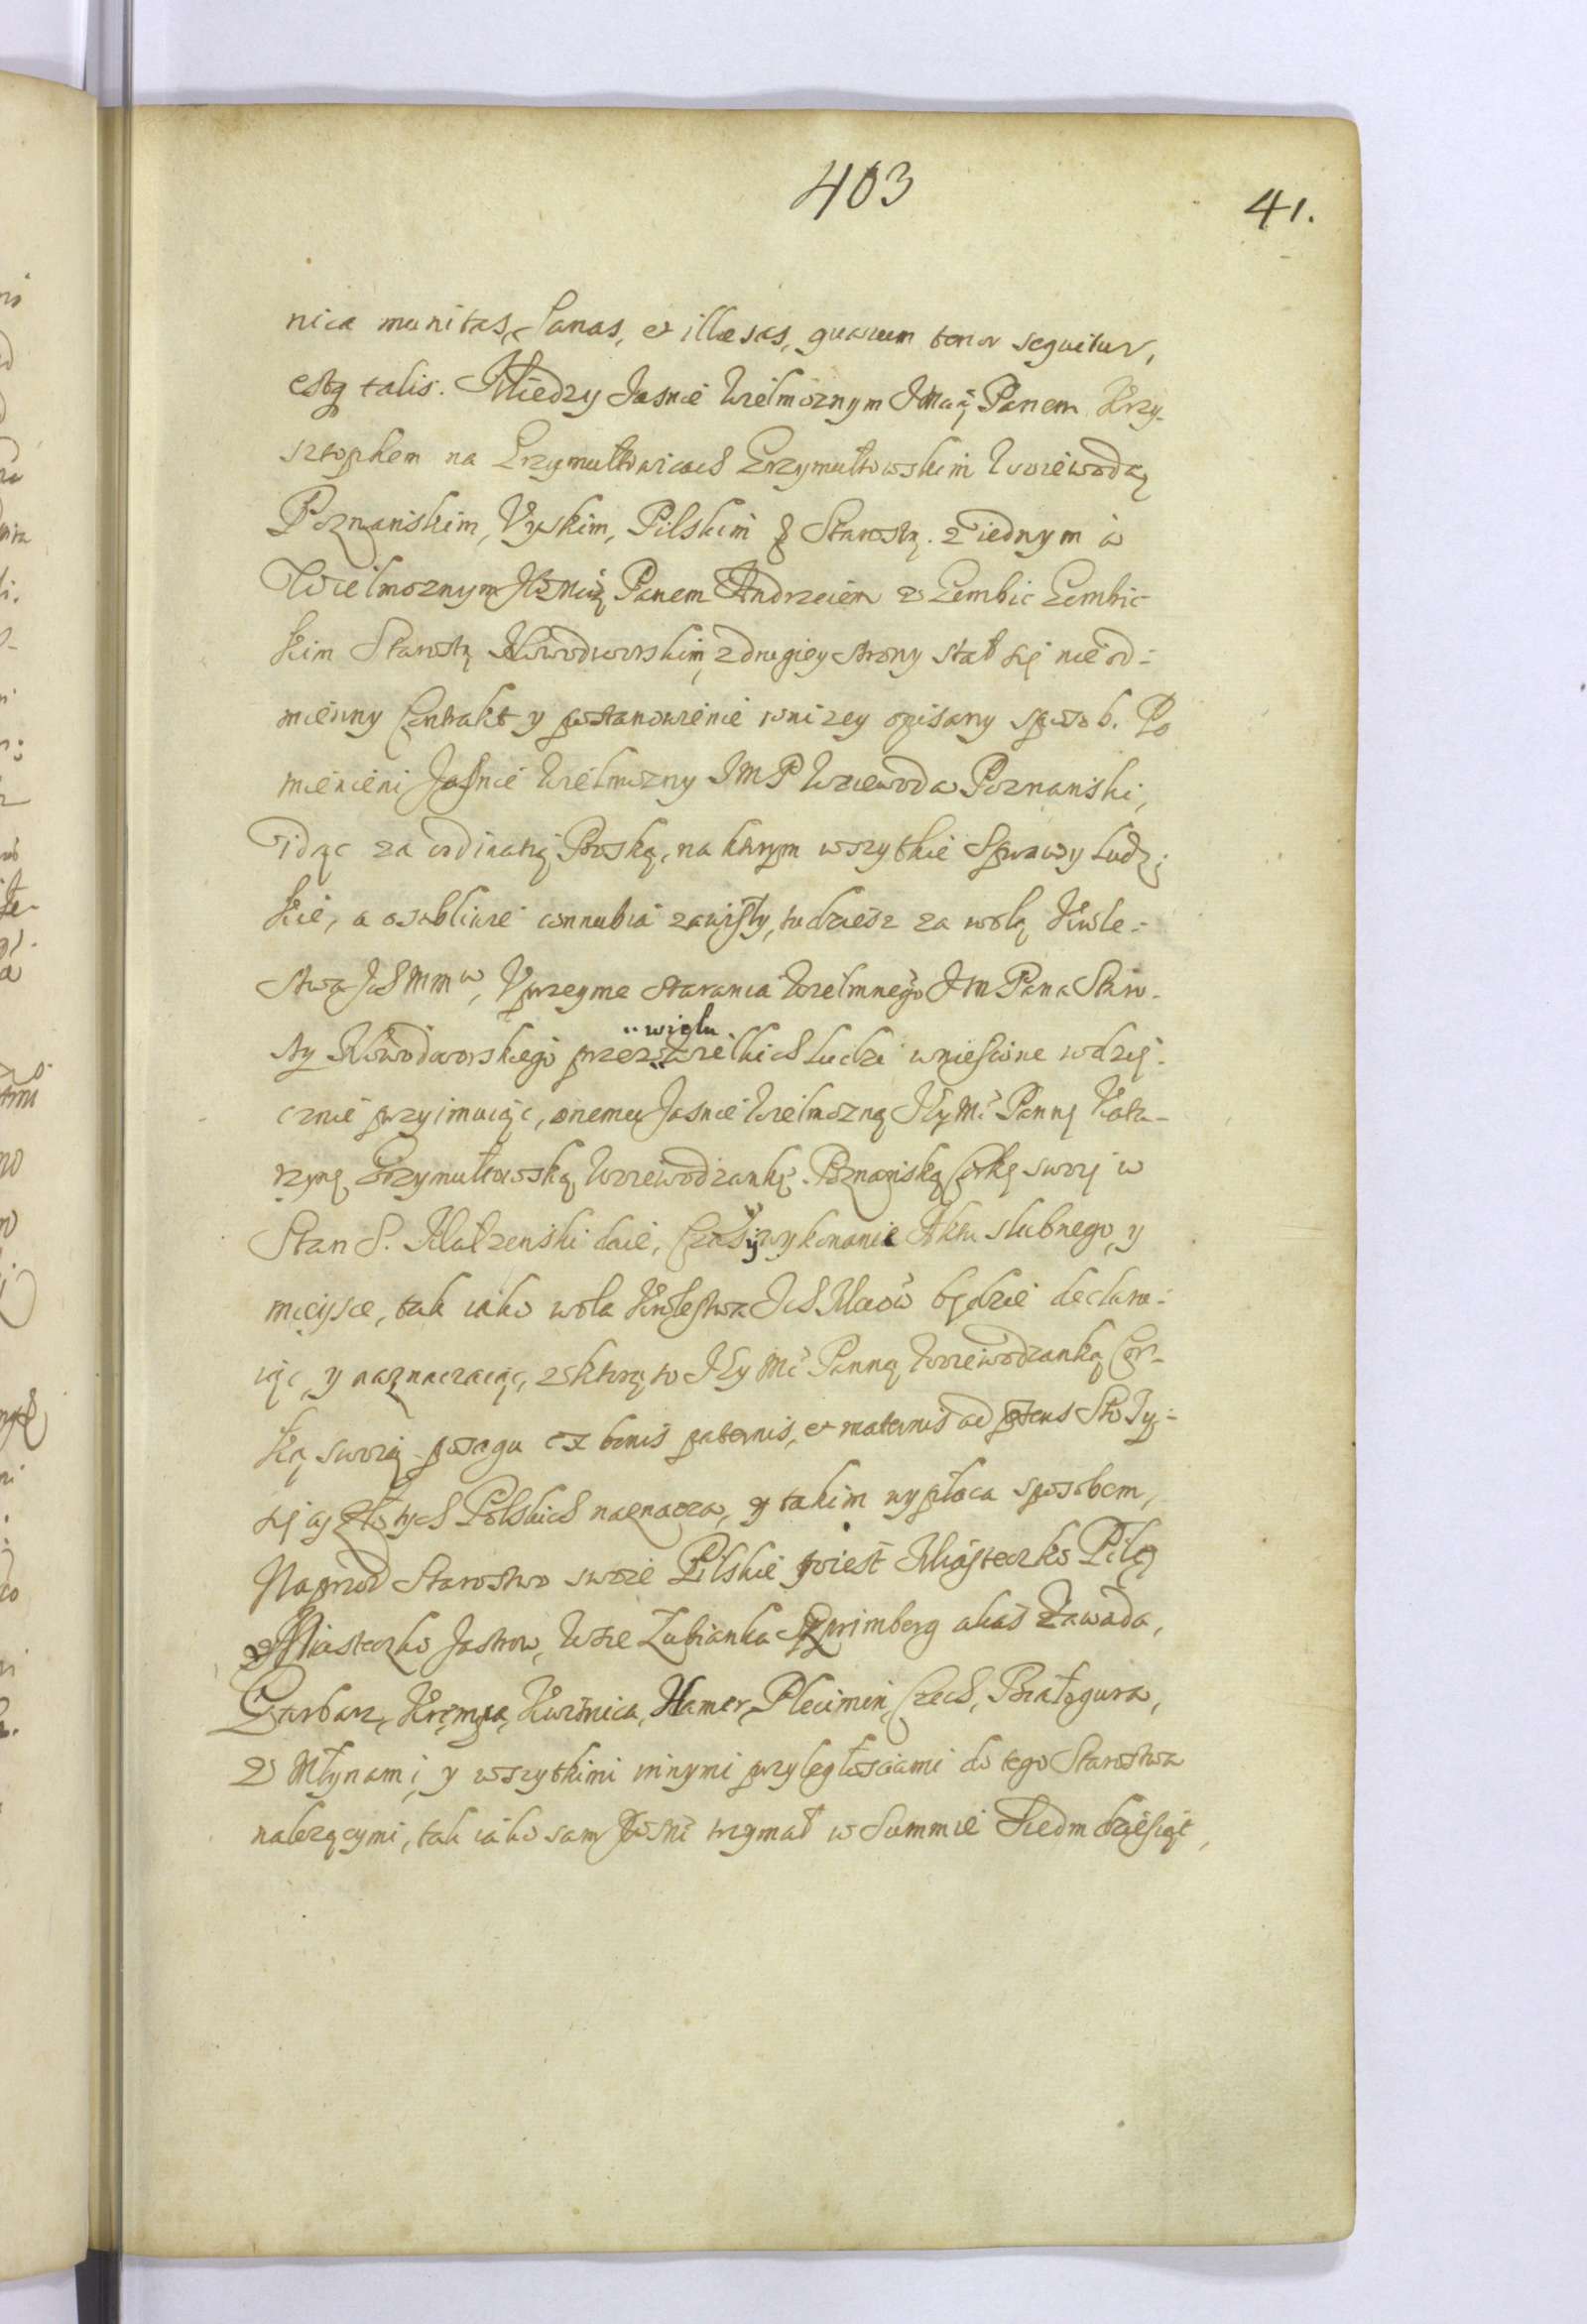 403
41.
nica munitas, Sanas, et illæsas, quarum tenor sequitur,
estq talis. Między Jasnie Wielmoznym JMcią Panem Krzy-
sztophem na Grzymułtowicach Grzymułtowskim Woiewodą
Poznanskim, Uyskim, Pilskim & Starostą. z iednym a
Wielmoznym JeoMcią Panem Andrzeiem z Gembic Gembic-
kim Starostą Nowodworskim, z drugiey strony stał się nieod-
mienny Contrakt y postanowienie wnizey opisany sposob. Po
mienieni Jasnie Wielmozny JMP Woiewoda Poznanski,
idąc za ordinatią Boską, na ktorym wszytkie Sprawy Ludz-
kie, a osobliwie connubia zawisły, tudziesz za wolą Krole-
stwa Ich Mmw, Uprzeyme starania Wielmnego JM Pana Staro-
sty Nowodworskiego przez wielu wielkich Ludzi wniesione wdzię-
cznie przyimuiąc, onemu Jasnie Wielmozną JeyMc Pannę Kata-
rzynę Grzymułtowską Woiewodziankę Poznanską Corkę swoię w
Stan S. Małzenski daie, Czas y wykonanie Aktu slubnego, y
mieysce, tak iako wola Krolestwa Ich Mciow będzie declaru-
iąc, y naznaczaiąc, z ktorą to Jey Mc Panną Woiewodzanką Cor-
ką swoią posagu ex bonis paternis, et maternis ad
Złotych Polskich naznacza, y takim wypłaca sposobem,
Naprzod Starostwo swoie Pilskie to iest Miasteczko Piłę
z Miasteczko Jastrow, Wsie Lubianka Szprimberg alias Zawada,
Garbarz, Krępsa, Kuznica, Hamer, Plecimin, Czech, Białągura,
z Młynami, y wszytkimi innymi przyległosciami do tego Starostwa
nalezącymi, tak iako sam trzymał w Summie Siedmdziesiąt,